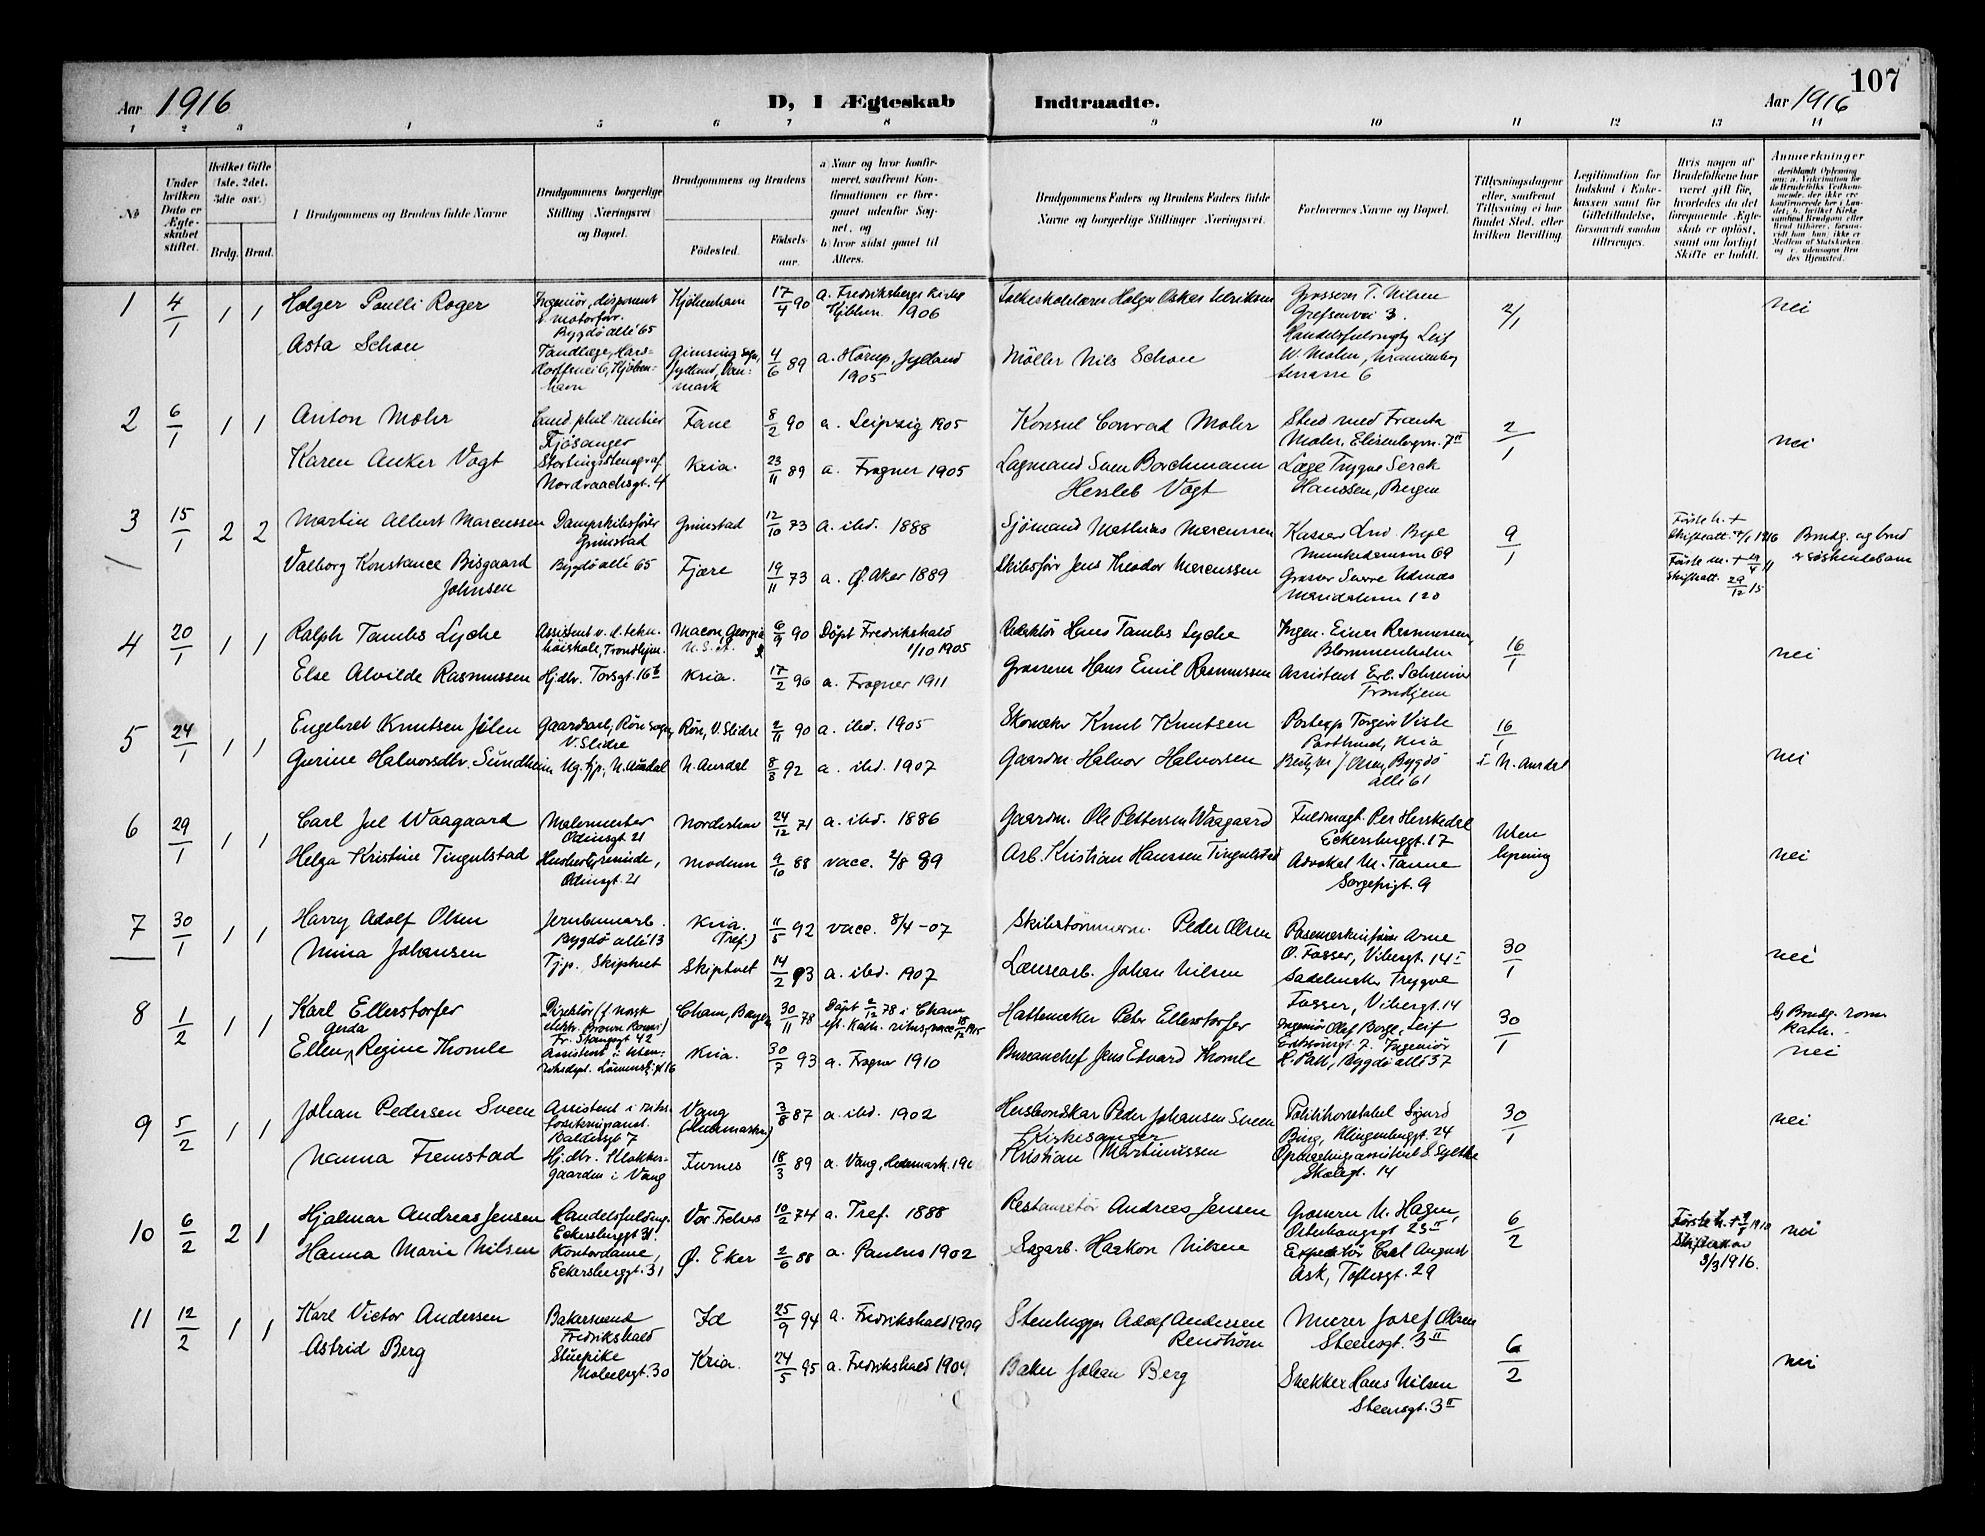 107
Aar 1916
D, I Ægteskab Indtraadte.
Aar 1916
1 2 3 4 5 6 7 8 9 10 11 12 13 14
№
Under hvilken Dato er Ægteskabet stiftet.
Hvilket Gifte (1ste, 2det, 3die osv.)
Brdg. Brud.
Brudgommens og Brudens fulde Navne
Brudgommens borgerlige Stilling (Næringsvei) og Bopæl.
Brudgommens og Brudens
Fødested.
Fødsels-aar.
a) Naar og hvor konfirmeret, saafremt Konfirmationen er foregaaet udenfor Sognet, og
b) hvor sidst gaaet til Alters.
Brudgommens Faders og Brudens Faders fulde Navne og borgerlige Stillinger (Næringsvei).
Forlovernes Navne og Bopæl.
Tillysningsdagene eller, saafremt Tillysning ei har fundet Sted, efter hvilken Bevilling.
Legitimation for Indskud i Enkekassen samt for Giftetilladelse, forsaavidt saadan tiltrænges.
Hvis nogen af Brudefolkene har været gift før, hvorledes da det foregaaende Ægteskab er opløst, samt om lovligt Skifte er holdt.
Anmerkninger
1 4/1 1 1
Holger Poulli Roger
Ingeniör, disponent
v. motorforr.
Bygdö allé 65
Kjöbenhavn 17/4 90
a. Fredriksbergs Kirke
Kjbhn. 1906
Grosserer T. Nilsen
Grefsenvei 3.
2/1
nei
Asta Schou
Tandlæge,
Kjöbenhavn
Jylland, Danmark
4/6 89
a. Hörup, Jylland
1905
Möller Nils Schou
terrasse 6
2 6/1 1 1
Anton Mohr
Cand. phil. rentier
Fjösanger
Fane 8/2 90
a. Leipzig 1905
Konsul Conrad Mohr
Stud. med. Frantz
Mohr, Elisenbergvn. 7 II
2/1
nei
Karen Anker Vogt
Stortingsstenograf
Nordraachsgt. 4
Kria. 23/11 89
a. Frogner 1905
Lagmand Sven Borchmann
Hersleb Vogt
Læge Trygve Serck
Hanssen, Bergen
3 15/1 2 2
Martin Albert Marcussen
Dampskibsförer
Grimstad
Grimstad 12/10 73
a. ibd. 1888
Sjömand Mathias Marcussen
Munkedamsvn 69
9/1
Brudg. og brud
er söskendebarn
Valborg Konstance Bisgaard
Johnsen
Bygdö allé 65
Fjære 19/11 73
a. Ø. Aker 1889
Skibsförer Jens Theodor Marcussen
Maridalsvn 120
4 20/1 1 1
Ralph Tambs Lyche
Assistent v. d. tekn.
höiskole, Trondhjem.
Macon, Georgia
U.S.A.
6/9 90
Döpt Fredrikshald
1/10 1905
Redaktör Hans Tambs Lyche
Ingen. Einar Rasmussen,
Blommenholm
16/1
nei
Else Alvilde Rasmussen
Hj.dtr. Torsgt. 16 b
Kria. 17/2 96
a. Frogner 1911
Grosserer Hans Emil Rasmussen
Assistent Erl. Schreiner
Trondhjem
5 24/1 1 1
Engebret Knutsen Jölen
Gaardsarb., Rön sogn,
V. Slidre
Rön, V. Slidre 2/11 90
a. ibd. 1905
Skomaker Knut Knutsen
Postexp. Torgeir Visle
Posthuset, Kria
16/1
i N. Aurdal
nei
Gurine Halvorsdtr. Sundheim
Ug. tjp., N. Aurdal
N. Aurdal 8/3 92
a. ibd. 1907
Gaardm. Halvor Halvorsen
Olsen, Bygdö
allé 61
6 29/1 1 1
Carl Jul Waagaard
Malermester
Odinsgt 21
Norderhov 24/12 71
a. ibd. 1886
Gaardm. Ole Pettersen Waagaard
Fuldmægt. Per Herredal
Eckersbergsgt. 17
Uten
lysning
nei
Helga Kristine Tingulstad
Husbestyrerinde,
Odinsgt. 21
Modum 9/10 88
vacc. 2/8 89
Arb. Kristian Hanssen Tingulstad
Advokat M. Tanne
Sorgenfrigt. 9
7 30/1 1 1
Harry Adolf Olsen
Jernbanearb.
Bygdö allé 13
Kria.
(Tref.)
11/5 92
vacc. 8/4 -07
Skibstömmerm. Peder Olsen
O. Fosser, Vibesgt. 14 I
30/1
nei
Nina Johansen
Tjp. Skiptvet
Skiptvet 14/2 93
a. ibd. 1907
Lænsearb. Johan Nilsen
Sadelmaker Trygve
Fosser, Vibesgt. 14
8 1/2 1 1
Karl Ellerstorfer
Direktör (f. norsk
elektr. Brown Boveri)
Fr. Stangsgt 42
Cham, Bayern 30/11 78
Döpt 2/12 78 i Cham
eft. kath. ritus,
Hattemaker Peter Ellerstorfer
Ingeniör Olaf Borge, Leif
30/1
b) Brudg. rom.
kath.
nei
Ellen Gerda Regine Thomle
Assistent i Utenriksdept.
Kria. 30/7 93
a. Frogner 1910
Bureauchef Jens Edvard Thomle
Bygdö allé 37
9 5/2 1 1
Johan Pedersen Sveen
Assistent i riksforsikringsanst.
Baldersgt 7
Vang
(Hedemarken)
3/8 87
a. ibd. 1902
Husbondskar Peder Johansen Sveen
Politikonstabel Sigurd
Berg, Klingenberggt. 24
30/1
nei
Nanna Fremstad
Hj.dtr. Klokkergaarden i Vang
Furnes 18/3 89
a. Vang, Hedemark. 190
Kirkesanger
Kristian Martinussen
Skolegt. 14
10 6/2 2 1
Hjalmar Andreas Jensen
Handelsfuldmg.
Eckersbergsgt 31.
Vor Frelsers 10/2 74
a. Tref. 1888
Restauratör Andreas Jensen
Grosserer N. Hagen,
Osterhausgt 25 II
6/2
3/3 1916.
nei
Hanna Marie Nilsen
Kontordame,
Eckersbergsgt. 31
Ø. Eker 2/6 88
a. Paulus 1902
Sagarb. Haakon Nilsen
Expeditör Carl August
Ask, Toftesgt. 29
11 12/2 1 1
Karl Victor Andersen
Bakersvend
Fredrikshald
Id 25/9 94
a. Fredrikshald 1909
Stenhugger Adolf Andersen
Renström
Murer Josef Olsen
Steensgt. 3 II
6/2
nei
Astrid Berg
Stuepike
Nobelsgt. 30
Kria. 24/5 95
a. Fredrikshald 1909
Baker Johan Berg
Snekker Hans Nilsen
Steensgt. 3 II